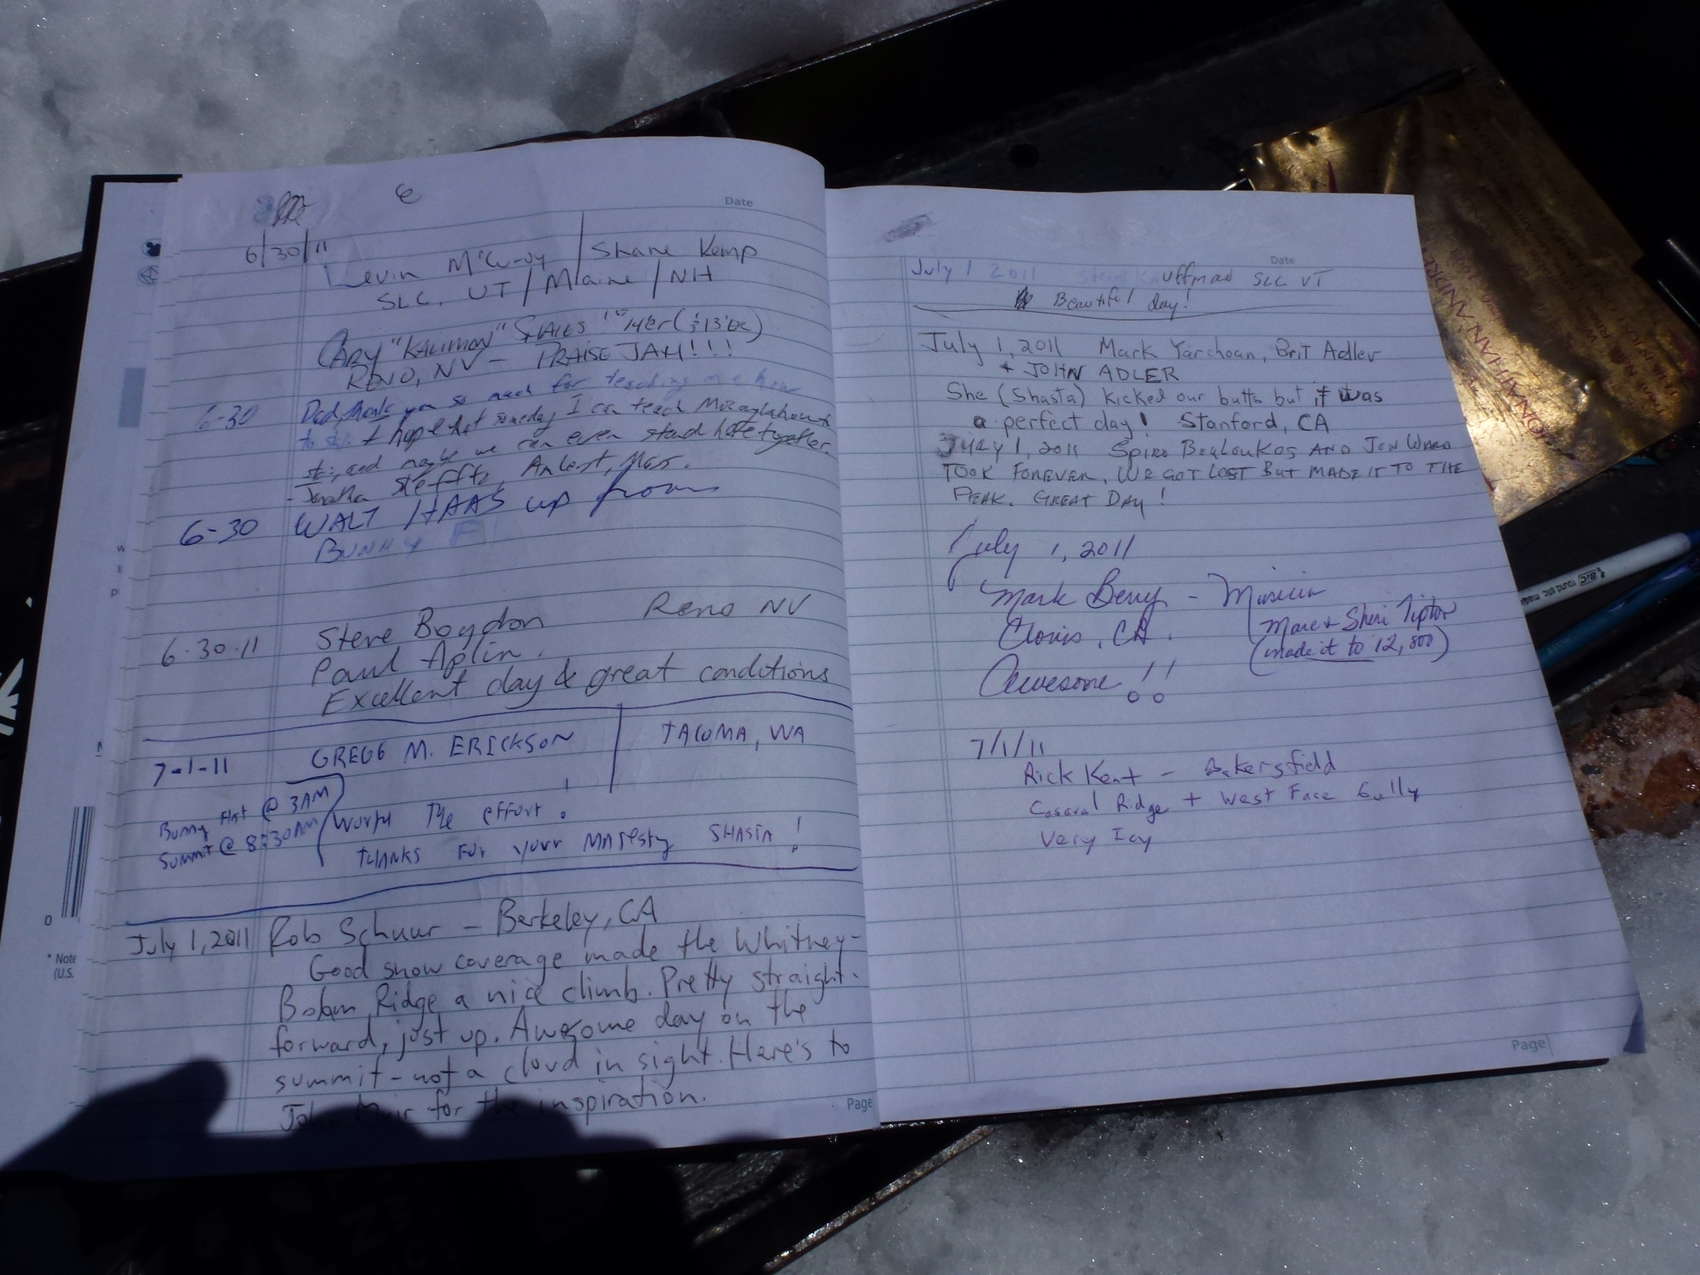 Date
6/30/11
Kevin / Shane Kemp
SLC, UT / Maine / NH
CARY "KALIMON"
RENO, NV — PRAISE JAH!!!
6-30 Dad, thank you so much for teaching me how
to ski. I hope that someday I can teach
ski, and maybe we can even stand here together.
- Jonathan Amherst, Mass.
6-30 WALT HAAS up from
BUNNY F
6.30.11 Steve Boydon Reno NV
Paul Aplin.
Excellent day & great conditions
7-1-11 GREGG M. ERICKSON TACOMA, WA
Bunny Flat @ 3AM
Summit @ 8:30AM
Worth The effort!
THANKS For your MAJesty SHASTA!
July 1, 2011 Rob Schuur - Berkeley, CA
Good snow coverage made the Whitney-
Ridge a nice climb. Pretty straight-
forward, just up. Awesome day on the
summit - not a cloud in sight. Here's to
John Muir for the inspiration.
Page
Date
July 1 2011 uffman SLC UT
Beautiful day!
July 1, 2011 Mark Yarchoan, Brit Adler
+ JOHN ADLER
She (Shasta) kicked our butts but it was
a perfect day! Stanford, CA
JULY 1, 2011 SPIRO AND JON WARD
TOOK FOREVER, WE GOT LOST BUT MADE IT TO THE
PEAK. GREAT DAY!
July 1, 2011
Mark Berry - Musician
Clovis, CA.
Marc + Sheri Tipton
(made it to 12,800)
Awesome!!
7/1/11
Rick Kent - Bakersfield
Casaval Ridge + West Face Gully
Very Icy
Page